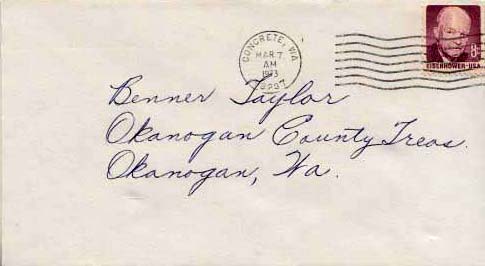 CONCRETE, WA
MAR 7
AM
1973
8¢
EISENHOWER·USA
Benner Taylor
Okanogan County Treas.
Okanogan, Wa.